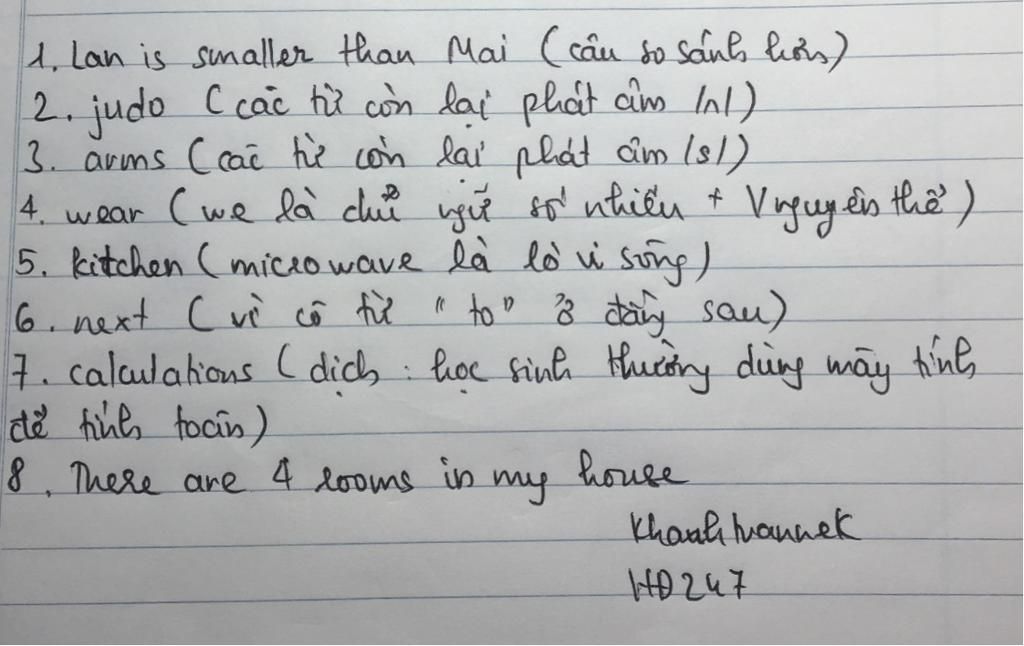 1. Lan is smaller than Mai (câu so sánh hơn)
2. judo (các từ còn lại phát âm /ʌ/)
3. arms (các từ còn lại phát âm /s/)
4. wear (we là chủ ngữ số nhiều + V nguyên thể)
5. kitchen (microwave là lò vi sóng)
6. next (vì có từ "to" ở đằng sau)
7. calculations (dịch: học sinh thường dùng máy tính
để tính toán)
8. There are 4 rooms in my house
HD247